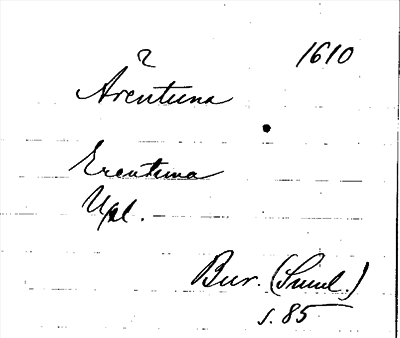 ?
1610
Ärentuna
Erentuna
Upl.
Bur. (Suml.)
s. 85